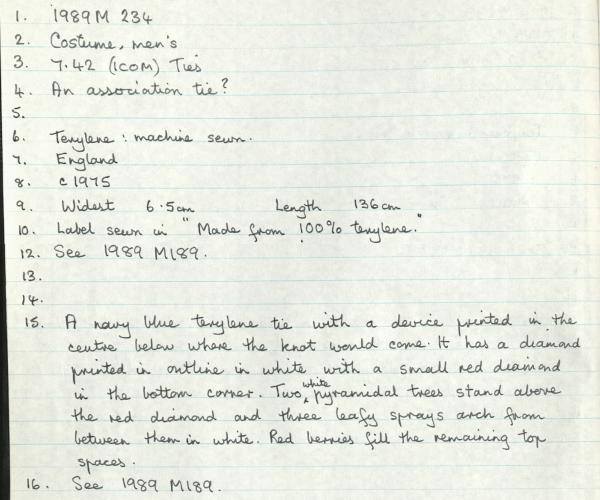 1. 1989 M 234
2. Costume, men's
3. 7.42 (ICOM) Ties
4. An association tie?
5.
6. Terylene : machine sewn.
7. England
8. c 1975
9. Widest 6.5cm Length 136cm
10. Label sewn in "Made from 100% terylene."
12. See 1989 M189.
13.
14.
15. A navy blue terylene tie with a device printed in the
centre below where the knot would come. It has a diamond
printed in outline in white with a small red diamond
in the bottom corner. Two white pyramidal trees stand above
the red diamond and three leafy sprays arch from
between them in white. Red berries fill the remaining top
spaces.
16. See 1989 M189.